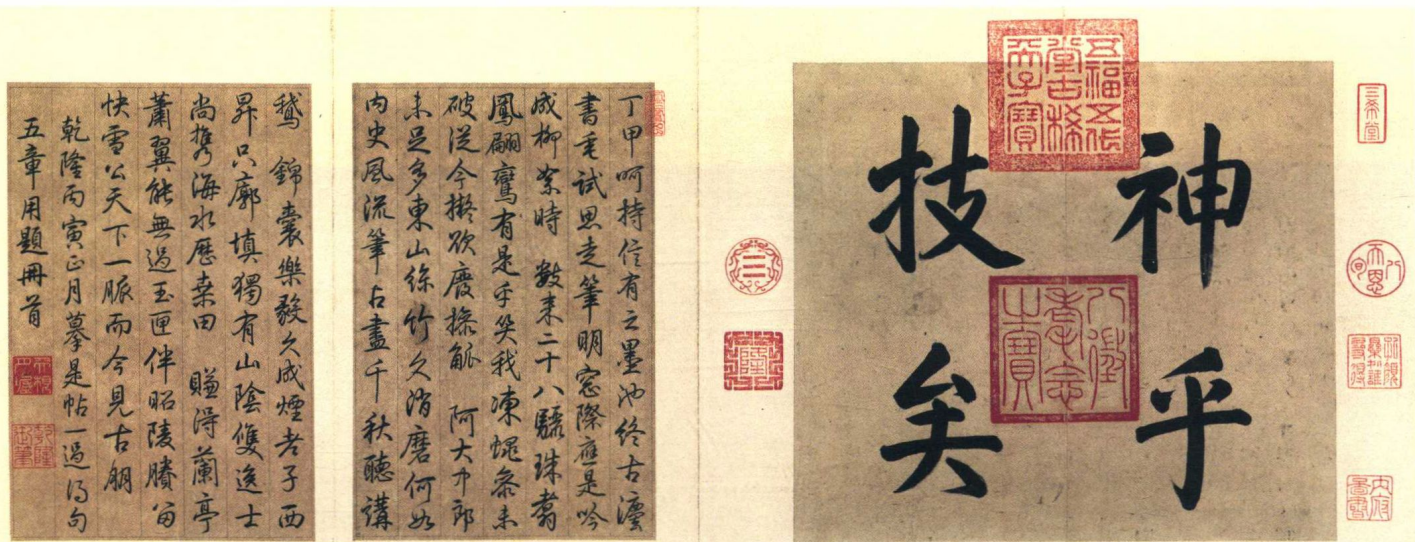 三希堂
神乎
技矣
五福五代堂古稀天子寶
八徵耄念之寶
乾隆
丁甲呵持信有之墨池終古灋
書垂試思走筆明窗際應是吟
成柳絮時　數來二十八驪珠翥
鳳翩鸞有是乎笑我凍蠅參未
破從今擬欲廢操觚　阿大中郎
未足多東山絲竹久消磨何如
內史風流筆占盡千秋聽講
鵝　錦囊樂毅久成煙老子西
昇只廓填獨有山陰雙逸士
尚攜海水歷桑田　賺得蘭亭
蕭翼能無過玉匣伴昭陵賸留
快雪公天下一脈而今見古朋
乾隆丙寅正月摹是帖一過得句
五章用題冊首